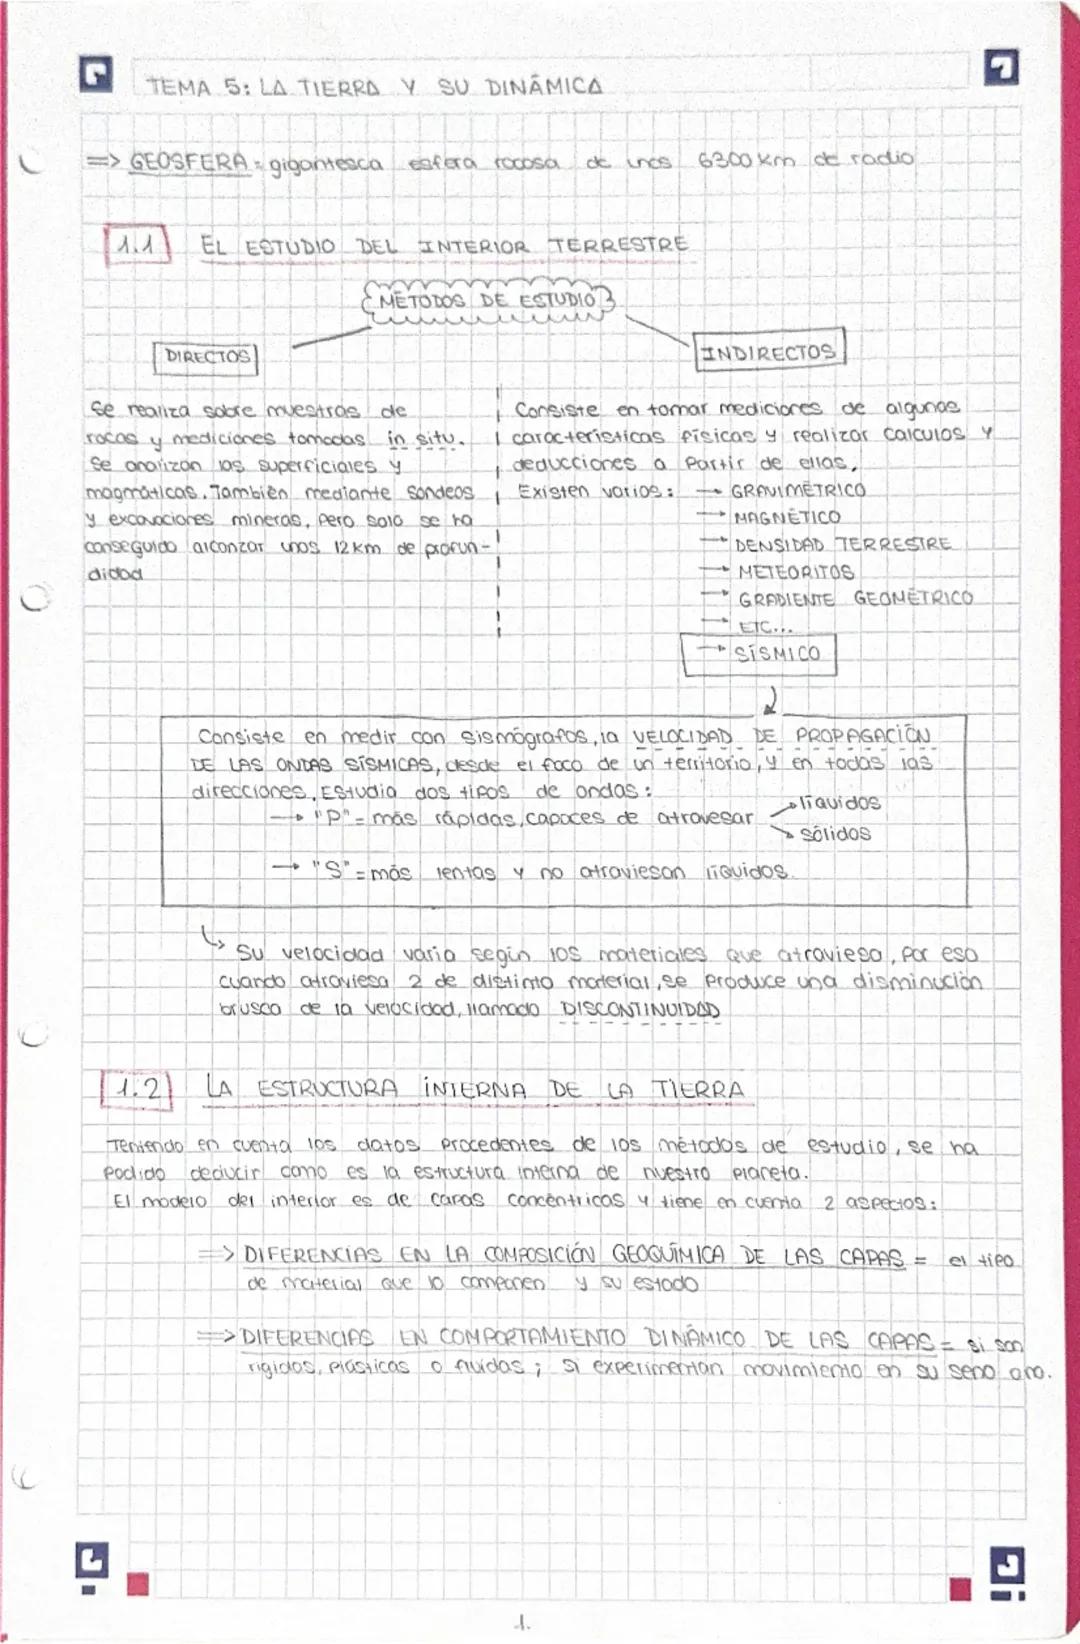 TEMA 5: LA TIERRA Y SU DINÁMICA
=> GEOSFERA = gigantesca esfera rocosa de unos 6300 km de radio
1.1 EL ESTUDIO DEL INTERIOR TERRESTRE
MÉTODOS DE ESTUDIO
DIRECTOS
Se realiza sobre muestras de
rocas y mediciones tomadas in situ.
Se analizan las superficiales y
magmáticas. También mediante sondeos
y excavaciones mineras, pero solo se ha
conseguido alcanzar unos 12 km de profun-
didad
INDIRECTOS
Consiste en tomar mediciones de algunas
características físicas y realizar calculos y
deducciones a partir de ellas.
Existen varios: → GRAVIMÉTRICO
→ MAGNÉTICO
→ DENSIDAD TERRESTRE
→ METEORITOS
→ GRADIENTE GEOMÉTRICO
→ ETC...
→ SÍSMICO
Consiste en medir con sismógrafos, la VELOCIDAD DE PROPAGACIÓN
DE LAS ONDAS SÍSMICAS, desde el foco de un territorio, y en todas las
direcciones. Estudia dos tipos de ondas:
→ "P" = más rápidas, capaces de atravesar → líquidos
→ sólidos
→ "S" = más lentas y no atraviesan líquidos.
↳ Su velocidad varia según los materiales que atraviesa, por eso
cuando atraviesa 2 de distinto material, se produce una disminución
brusca de la velocidad, llamado DISCONTINUIDAD
1.2 LA ESTRUCTURA INTERNA DE LA TIERRA
Teniendo en cuenta los datos procedentes de los métodos de estudio, se ha
podido deducir como es la estructura interna de nuestro planeta.
El modelo del interior es de capas concéntricas y tiene en cuenta 2 aspectos:
=> DIFERENCIAS EN LA COMPOSICIÓN GEOQUÍMICA DE LAS CAPAS = el tipo
de material que lo componen y su estado
=> DIFERENCIAS EN COMPORTAMIENTO DINÁMICO DE LAS CAPAS = si son
rigidas, plásticas o fluidas; si experimentan movimiento en su seno
1.